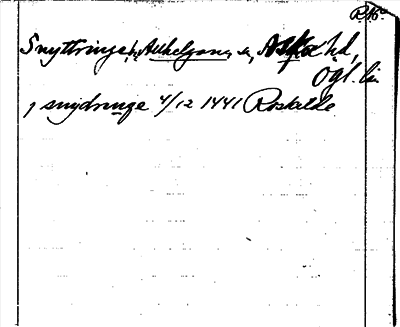 Snyttringe, Allhelgona sn, Aska hd,
Ögl. län
j snydringe 4/12 1441 Rostalde